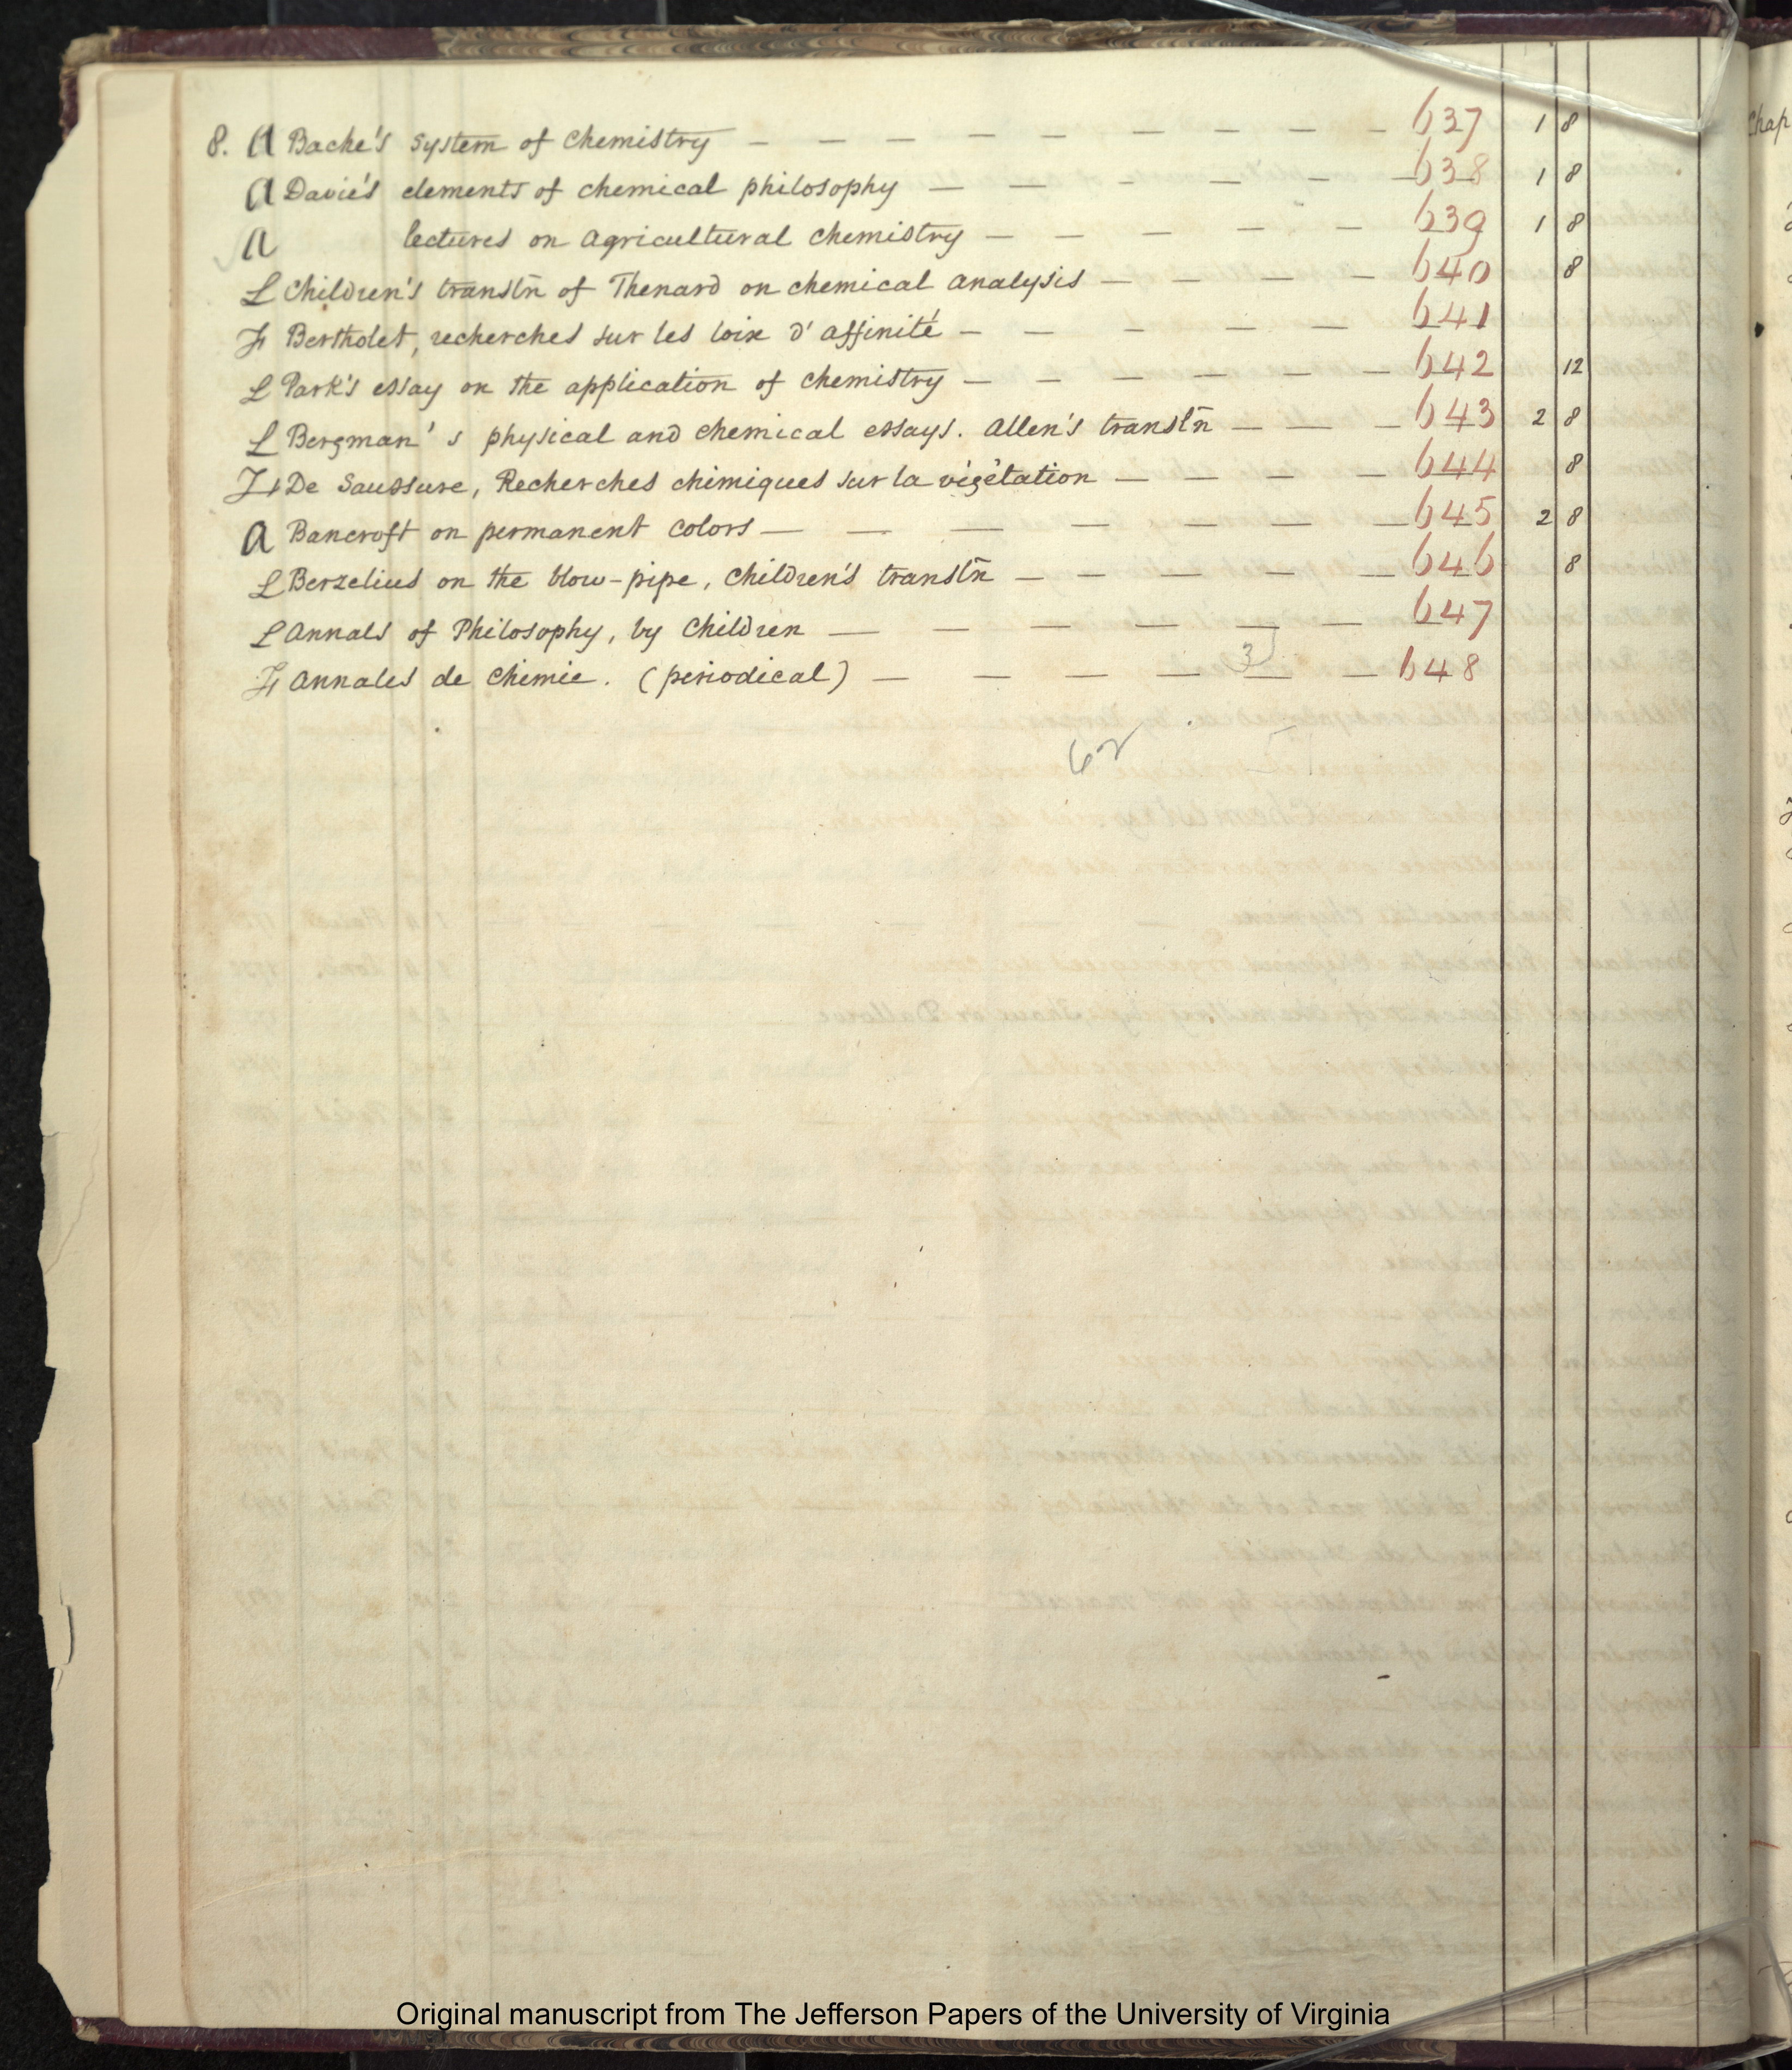 8. A Bache's System of Chemistry — — — — — — — — — — 637 1 8
A Davie's elements of chemical philosophy — — — — — — 638 1 8
A lectures on Agricultural Chemistry — — — — — 639 1 8
L Children's transl̄n of Thenard on chemical analysis — — — — 640 8
Fr Berthollet, recherches sur les loix d'affinité — — — — — 641
L Park's essay on the application of chemistry — — — — — — 642 12
L Bergman's physical and chemical essays. Allen's transl̄n — — — 643 2 8
Fr De Saussure, Recherches chimiques sur la végétation — — — — 644 8
A Bancroft on permanent colors — — — — — — — 645 2 8
L Berzelius on the blow-pipe, Children's transl̄n — — — — — 646 8
L Annals of Philosophy, by Children — — — — — — 647
3
Fr Annales de Chimie. (periodical) — — — — — — 648
62
Chap
Original manuscript from The Jefferson Papers of the University of Virginia